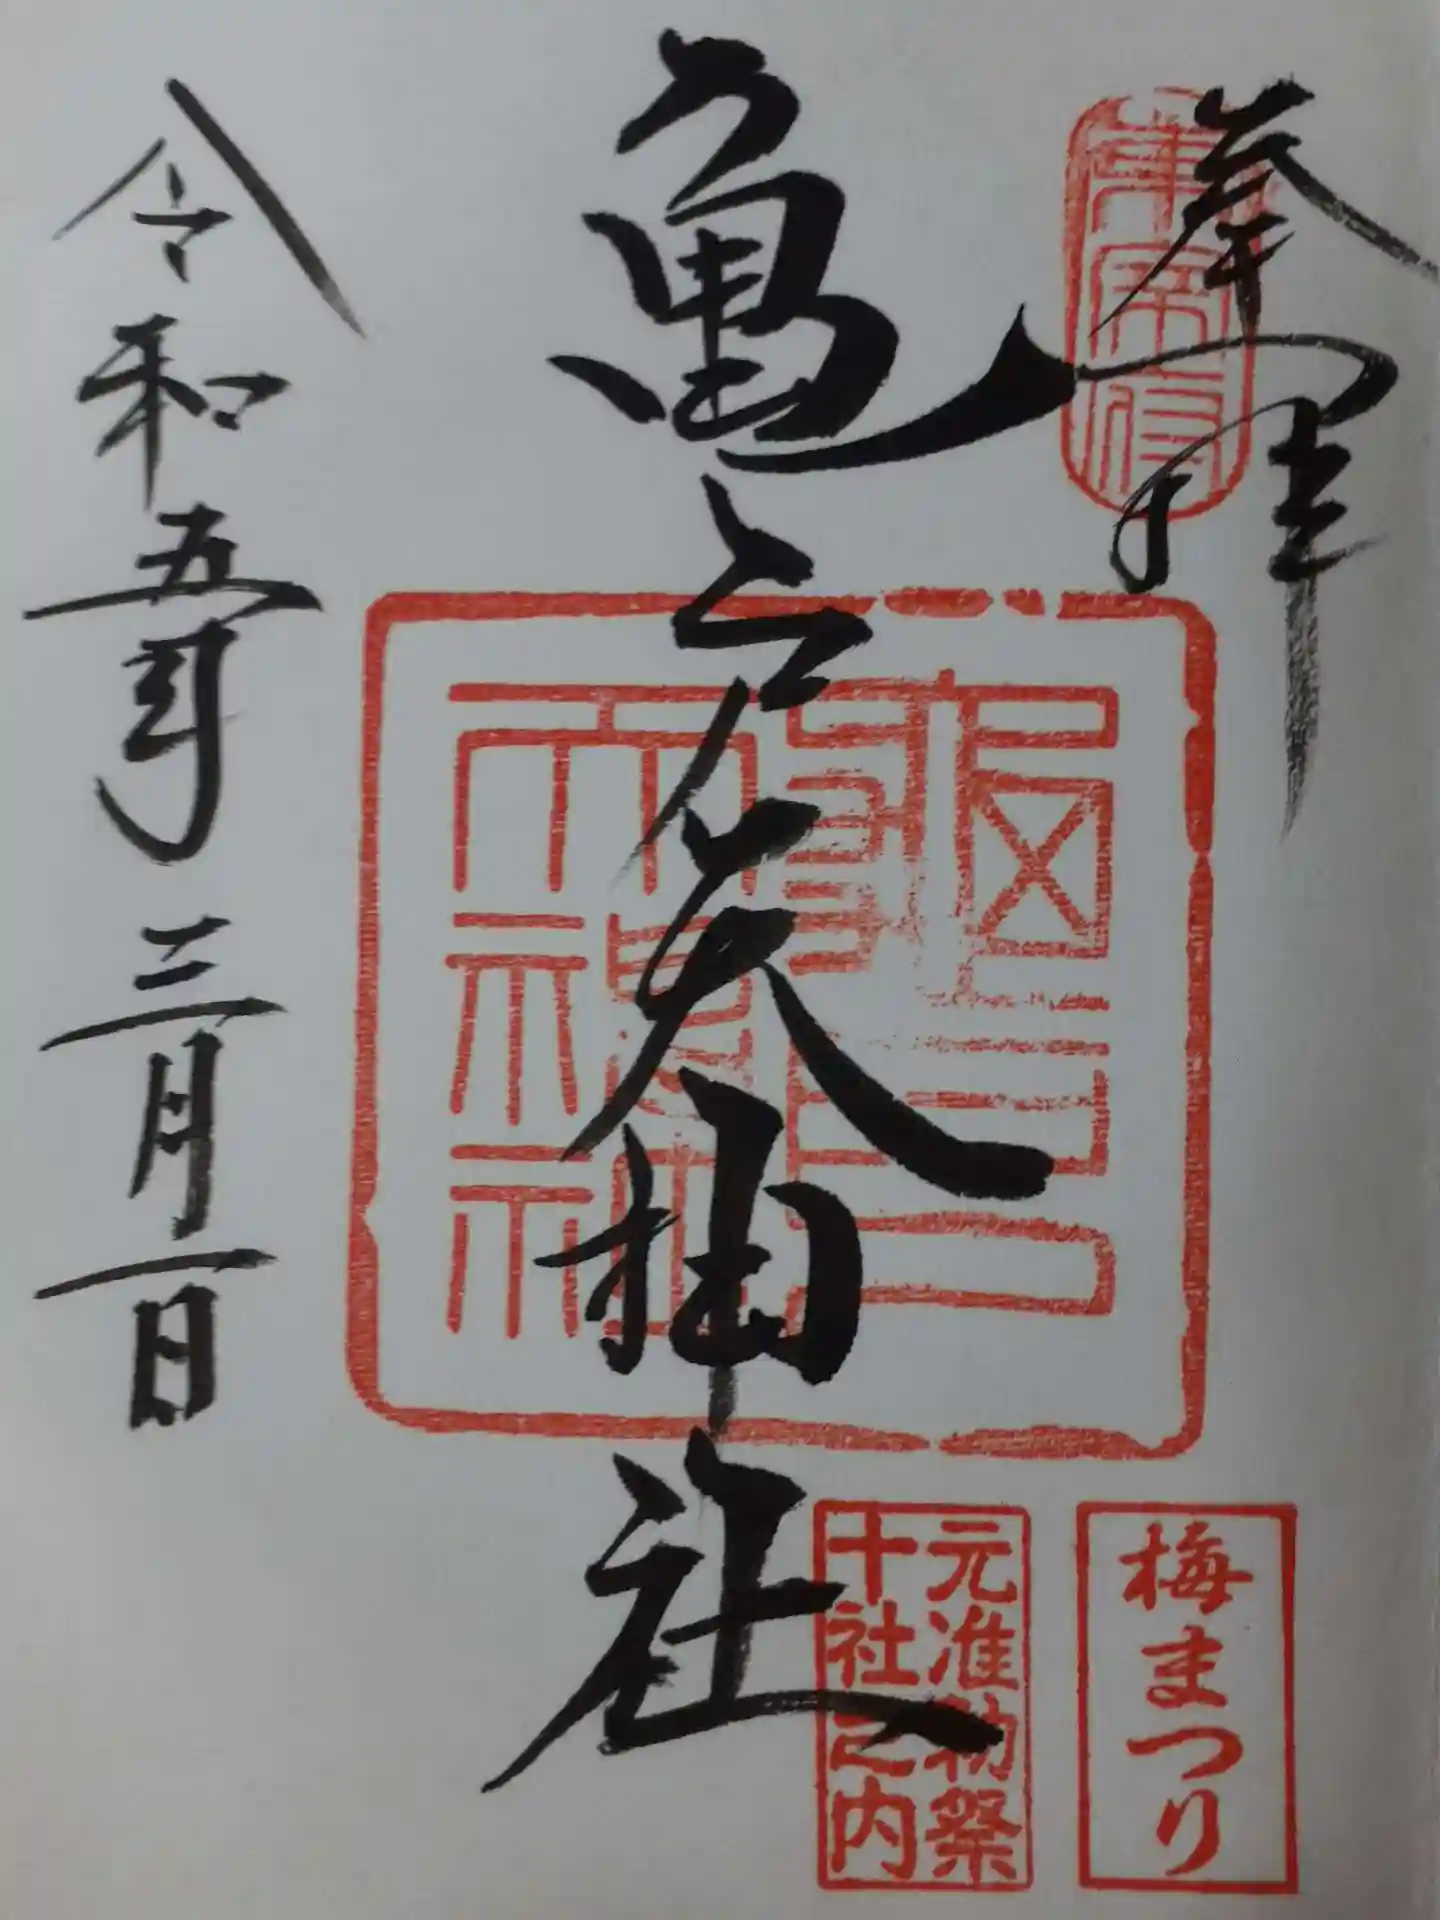 奉拝
東宰府
亀戸天神社
亀戸天神社
令和五年三月一日
梅まつり
元准勅祭
十社之内